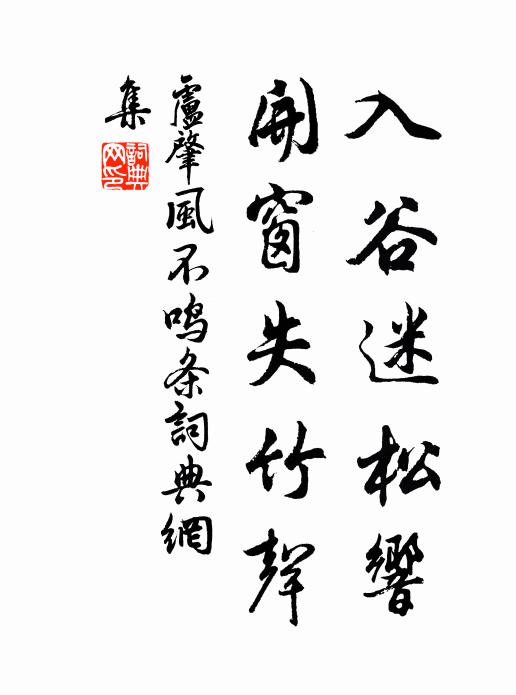 入谷迷松響
開窗失竹聲
盧肇風不鸣条詞典網
集
詞典
网印